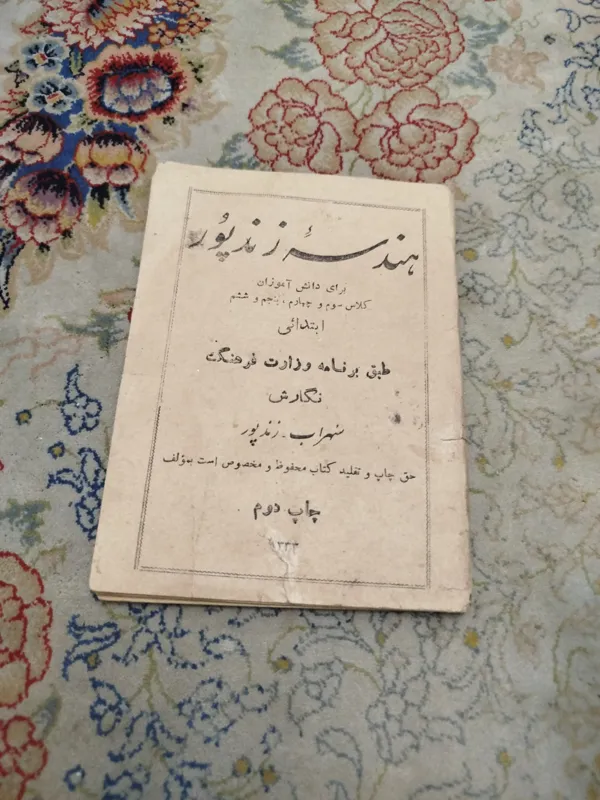 هندسهٔ زندپور
برای دانش آموزان
کلاس سوم و چهارم، پنجم و ششم
ابتدائی
طبق برنامه وزارت فرهنگ
نگارش
سهراب - زندپور
حق چاپ و تقلید کتاب محفوظ و مخصوص است بمؤلف
چاپ دوم
۱۳۳۳